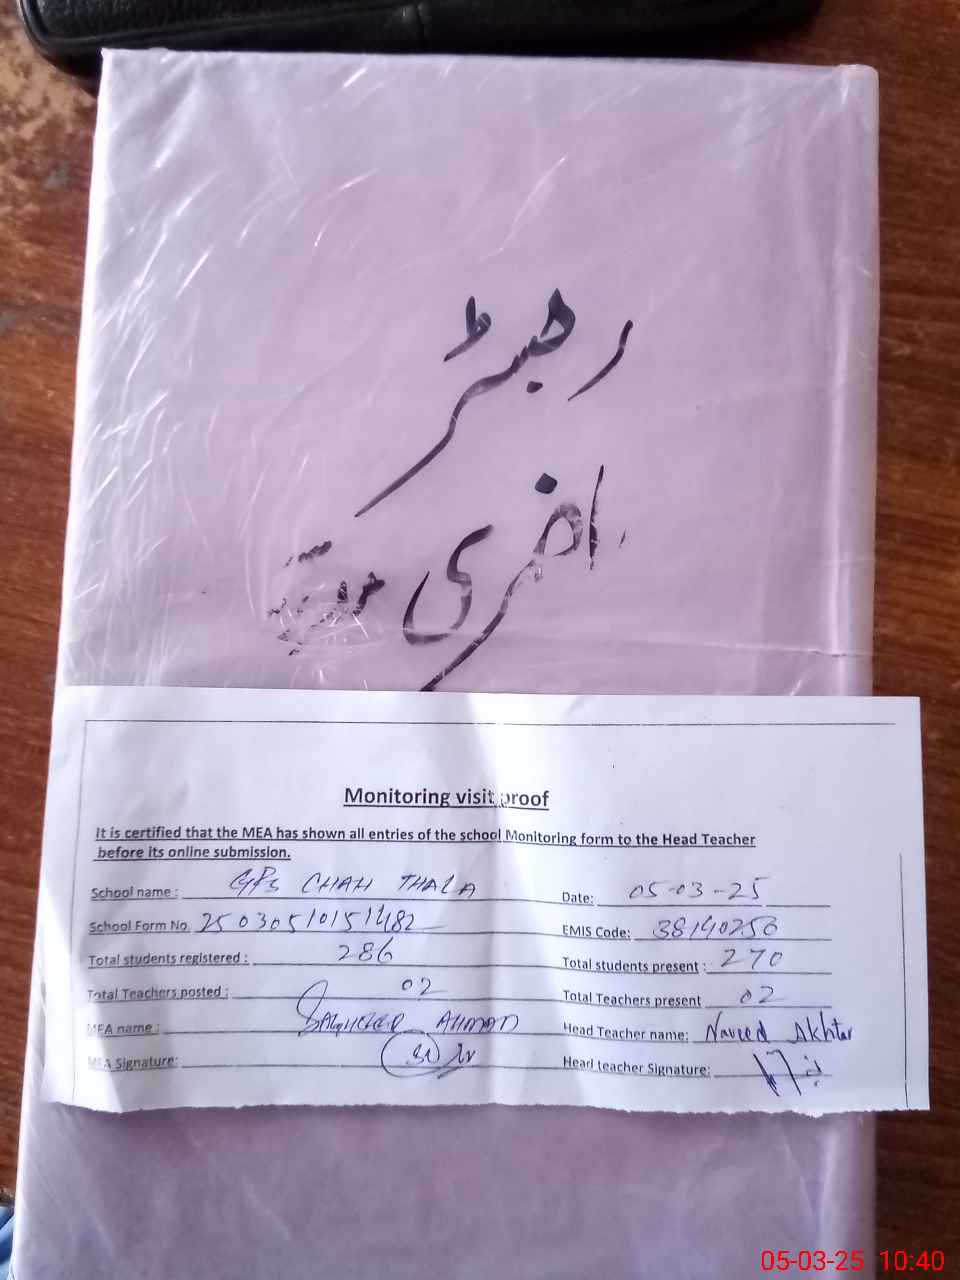 رجسٹر
حاضری مدرسہ
Monitoring visit proof
It is certified that the MEA has shown all entries of the school Monitoring form to the Head Teacher
before its online submission.
School name : GPS CHAH THALA Date: 05-03-25
School Form No. 250305101511482 EMIS Code: 38140256
Total students registered : 286 Total students present : 270
Total Teachers posted : 02 Total Teachers present 02
MEA name : AHMAD Head Teacher name: Naveed Akhtar
MEA Signature: Head teacher Signature:
05-03-25 10:40